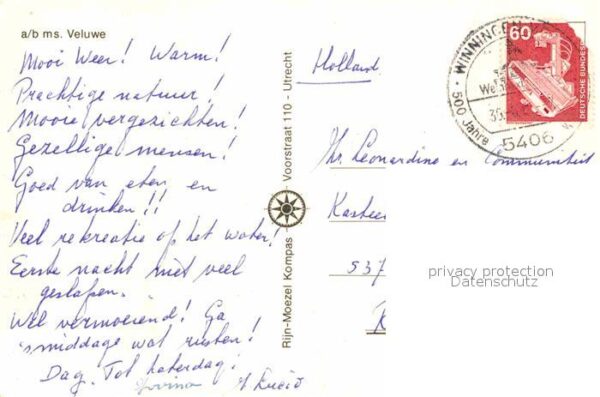 a/b ms. Veluwe
Mooi Weer! Warm!
Prachtige natuur!
Mooie vergezichten!
Gezellige mensen!
Goed van eten en
drinken!!
Veel rekreatie op het water!
Eerste nacht niet veel
geslapen.
Wel vermoeiend! Ga
'smiddags wat rusten!
Dag. Tot Zaterdag!
Rijn-Moezel Kompas Voorstraat 110 - Utrecht
Holland
60
DEUTSCHE BUNDESPOST
WINNINGEN
500 Jahre
5406
Leonardine en Communiteit
Kasteel
537
K
privacy protection
Datenschutz